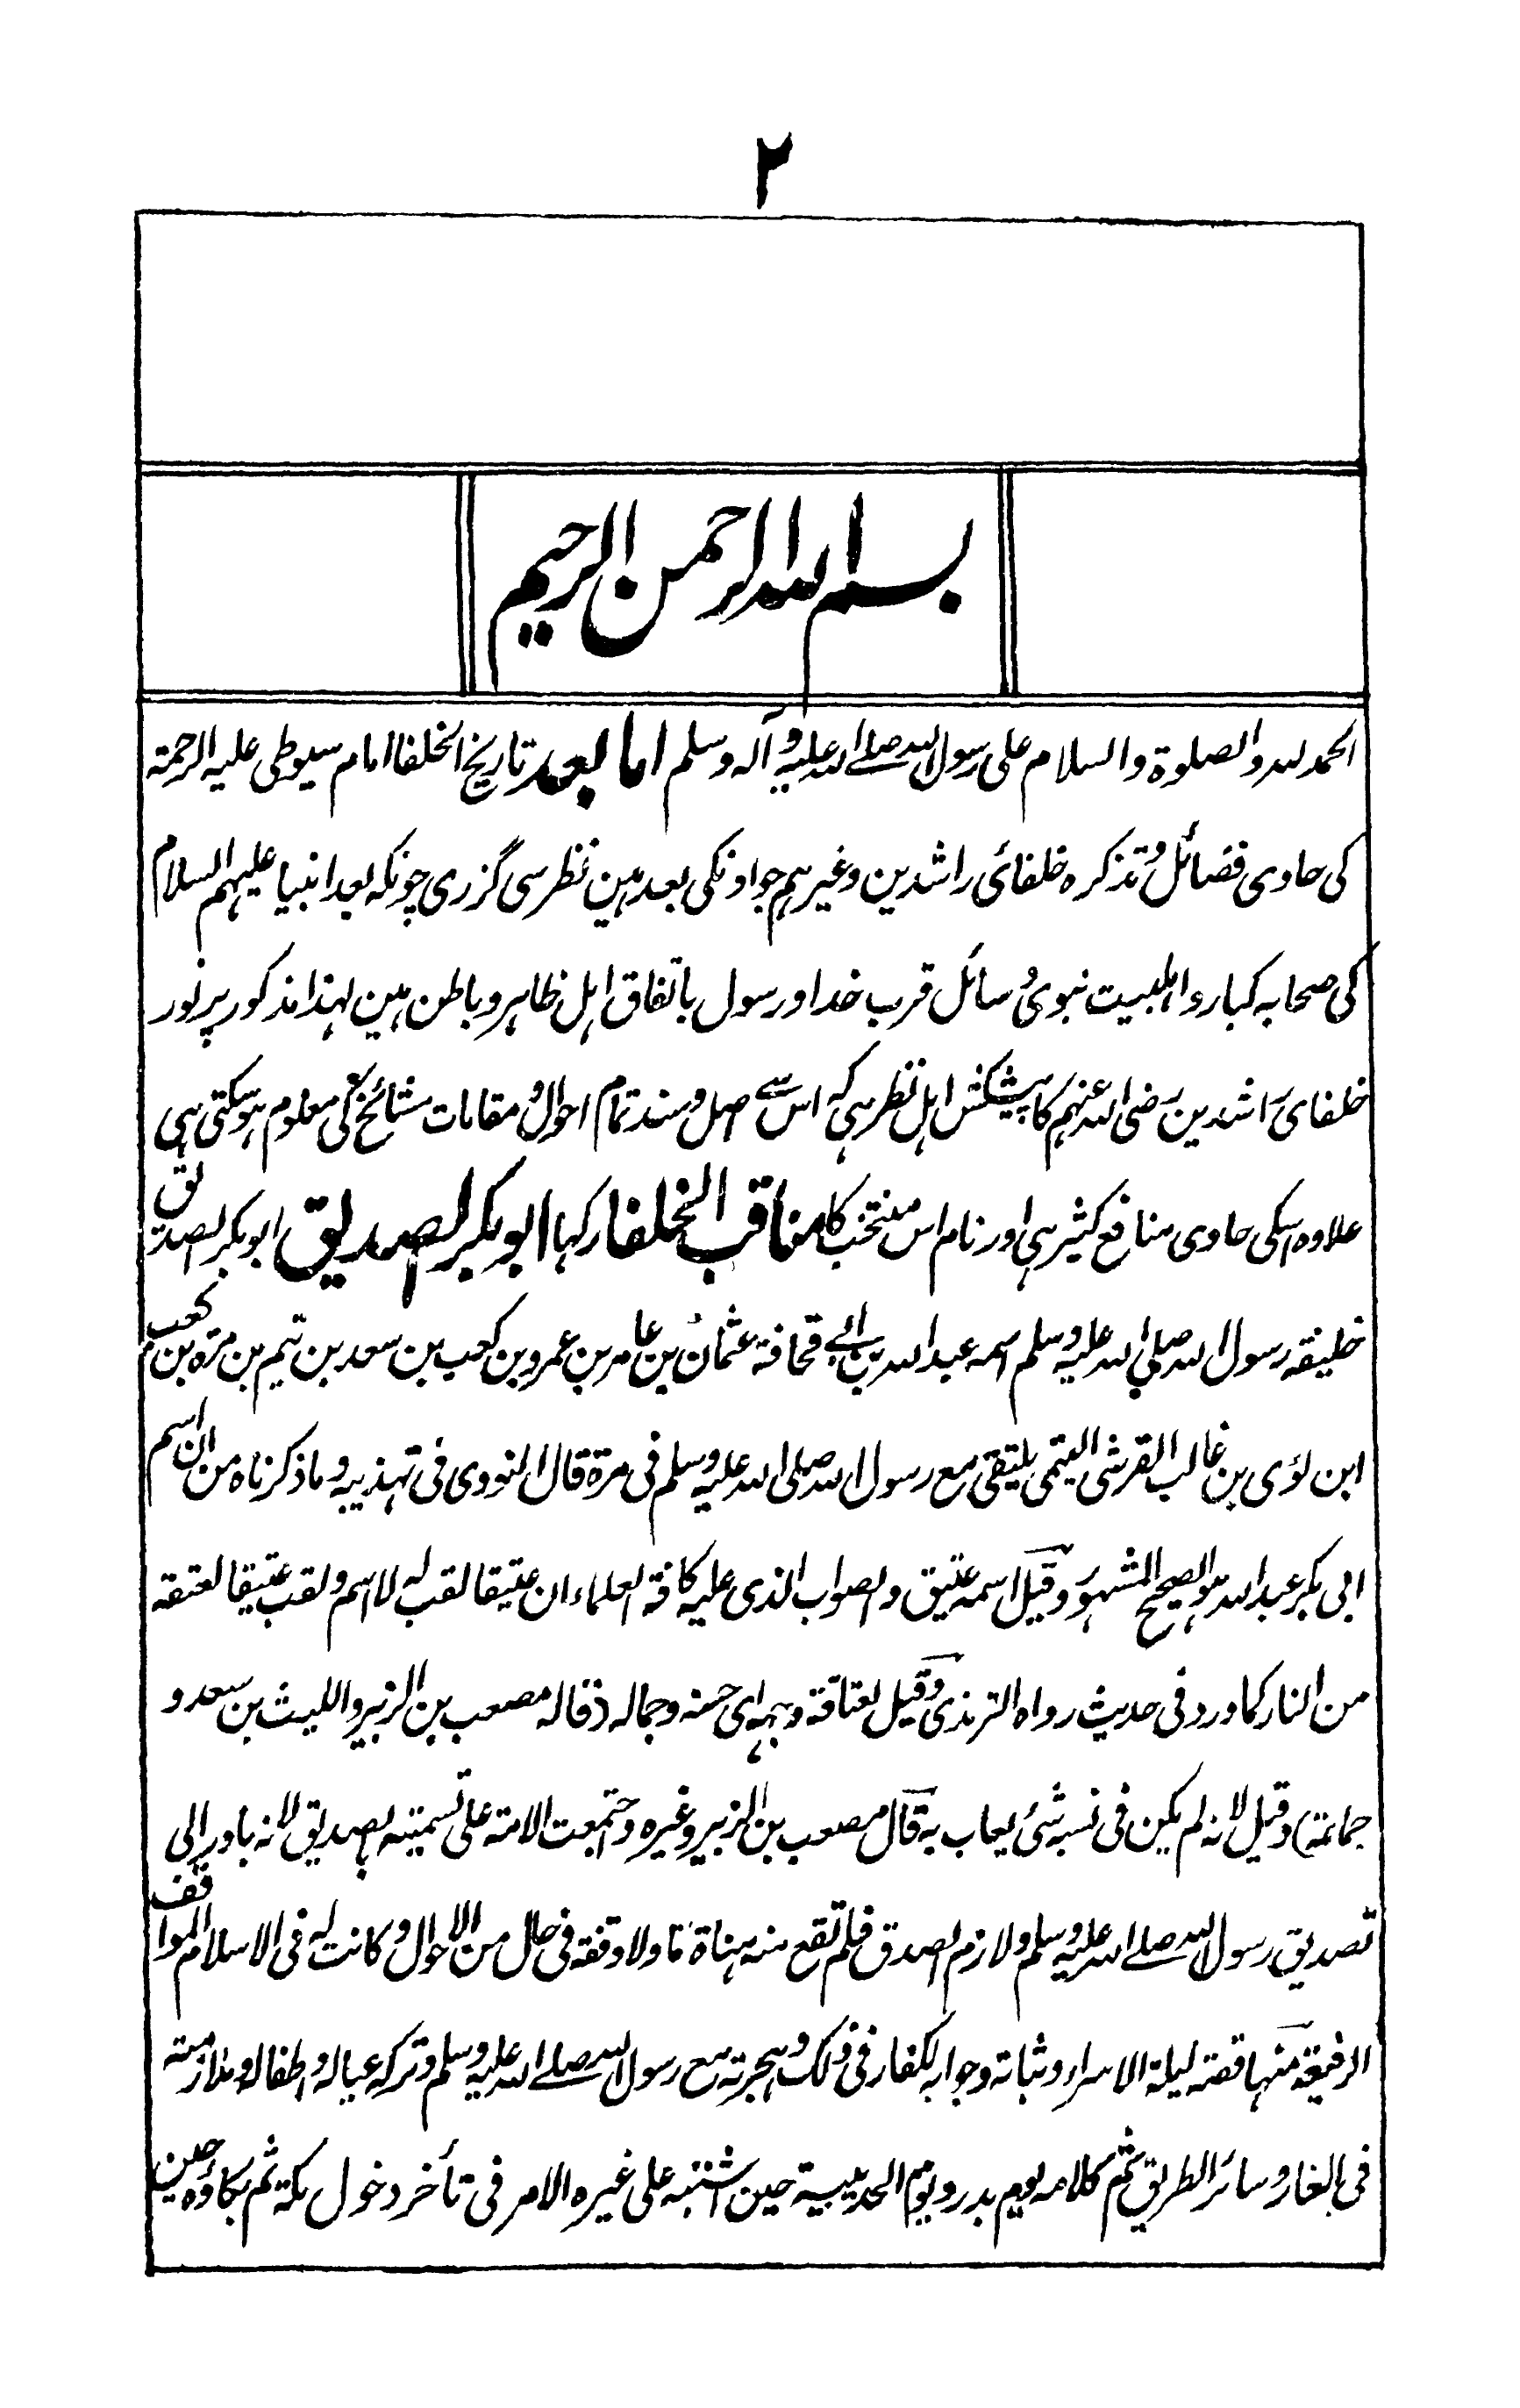 ۲
بسم الله الرحمن الرحیم
الحمد لله والصلوة والسلام علی رسول الله صلے الله علیه و آله وسلم اما بعد تاریخ الخلفا امام سیوطی علیه الرحمة
کی حاوی فضائل و تذکره خلفائ راشدین وغیرہم جو اونکی بعد ہین نظر سی گزری چونکه بعد انبیا علیہم السلام
کی صحابه کبار و اہلبیت نبوی وسائل قرب خدا و رسول باتفاق اہل ظاہر و باطن ہین لہذا مذکور پر نور
خلفای راشدین رضی الله عنہم کا پیشکش اہل نظر ہی که اس سے اصل و سند تمام احوال و مقامات مشائخ کی معلوم ہو سکتی ہی
علاوه اسکی حاوی منافع کثیر ہی اور نام اس منتخب کا مناقب الخلفا رکہا ابوبکر الصدیق ابو بکر الصدیق
خلیفه رسول الله صلی الله علیه وسلم اسمه عبد الله بن ابی قحافة عثمان بن عامر بن عمرو بن کعب بن سعد بن تیم بن مره بن کعب
ابن لؤی بن غالب القرشی التیمی یلتقی مع رسول الله صلی الله علیه وسلم فی مرة قال النووی فی تہذیبه وما ذکرناه من ان اسم
ابی بکر عبد الله ہو الصحیح المشہور وقیل اسمه عتیق والصواب الذی علیه کافة العلماء ان عتیقا لقب له لا اسم ولقب عتیقا لعتقه
من النار کما ورد فی حدیث رواه الترمذی وقیل لعتاقة وجہه ای حسنه وجماله (قاله مصعب بن الزبیر واللیث بن سعد و
جماعة) وقیل لانه لم یکن فی نسبه شئ یعاب به قال مصعب بن الزبیر وغیره واجتمعت الامة علی تسمیته بالصدیق لانه بادر الی
تصدیق رسول الله صلے الله علیه وسلم ولازم الصدق فلم تقع منه ہناة ما ولا وقفه فی حال من الاحوال وکانت له فی الاسلام المواقف
الرفیعة منہا قصته لیلة الاسراء وثباته وجوابه لکفار فی ذلک وہجرته مع رسول الله صلے الله علیه وسلم وترکه عیاله واطفاله وملازمته
فی الغار وسائر الطریق ثم کلامه یوم بدر ویوم الحدیبیة حین اشتبه علی غیره الامر فی تأخر دخول مکة ثم بکاؤه حین